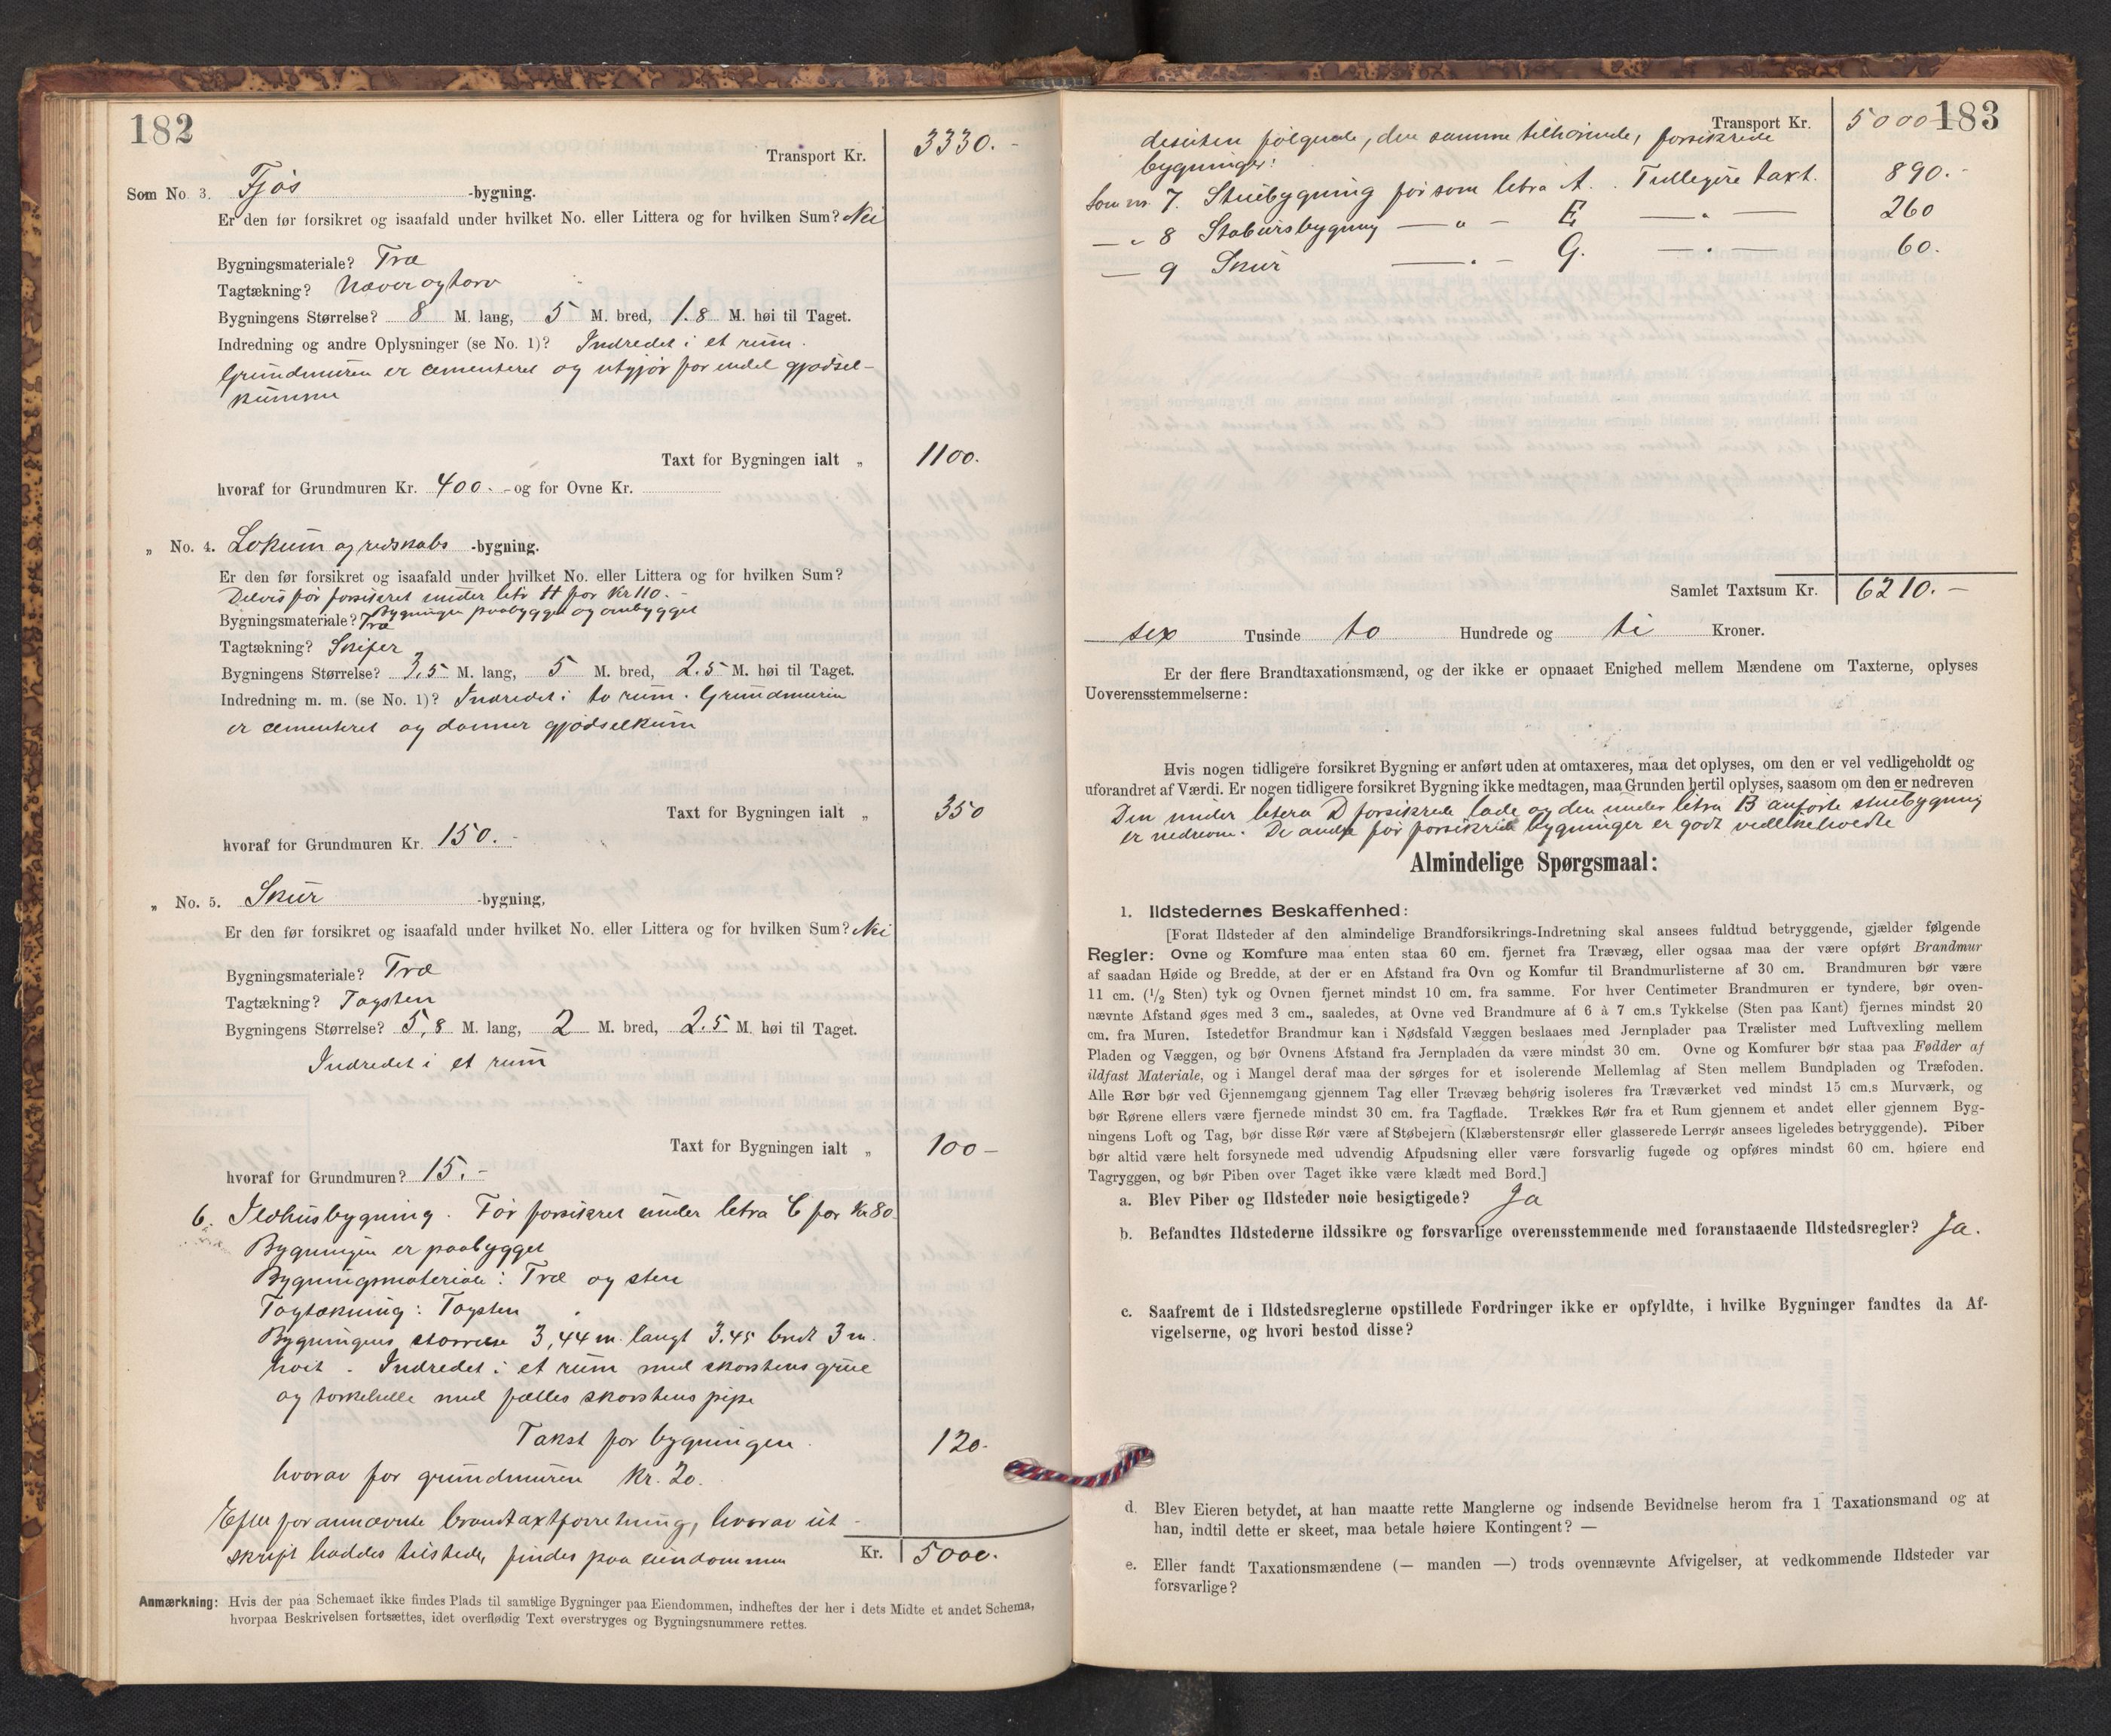 182
Transport Kr. 3330.-
Som No. 3. Fjøs -bygning.
Er den før forsikret og isaafald under hvilket No. eller Littera og for hvilken Sum? Nei
Bygningsmateriale? Træ
Tagtækning? Næver og torv
Bygningens Størrelse? 8 M. lang, 5 M. bred, 1.8 M. høi til Taget.
Indredning og andre Oplysninger (se No. 1)? Indredet i et rum.
Grundmuren er cementeret og utgjør for endel gjødsel-
kumme
Taxt for Bygningen ialt „ 1100.
hvoraf for Grundmuren Kr. 400.- og for Ovne Kr.
„ No. 4. Lokum og redskabs -bygning.
Er den før forsikret og isaafald under hvilket No. eller Littera og for hvilken Sum?
Delvis før forsikret under litr H for Kr 110.-
Bygningen paabygget og ombygget
Bygningsmateriale? Træ
Tagtækning? Skifer
Bygningens Størrelse? 3,5 M. lang, 5 M. bred, 2.5 M. høi til Taget.
Indredning m. m. (se No. 1)? Indredet i to rum. Grundmuren
er cementeret og danner gjødselkum
Taxt for Bygningen ialt „ 350
hvoraf for Grundmuren Kr. 150.-
„ No. 5. Skur -bygning,
Er den før forsikret og isaafald under hvilket No. eller Littera og for hvilken Sum? Nei
Bygningsmateriale? Træ
Tagtækning? Tagsten
Bygningens Størrelse? 5,8 M. lang, 2 M. bred, 2.5 M. høi til Taget.
Indredet i et rum
Taxt for Bygningen ialt „ 100-
hvoraf for Grundmuren? 15.-
6. Ildhusbygning. Før forsikret under letra C for Kr 80
Bygningen er paabygget
Bygningsmateriale: Træ og sten
Tagtækning: Tagsten
Bygningens størrelse 3,44 m. langt 3.45 bredt 3 m.
høit. Indredet i et rum med skorstens grue
og tørkehelle med fælles skorstens pipe
Takst for bygningen. 120.
hvorav for grundmuren kr. 20.
Efter forannævnte brandtaxtforretning, hvorav ut-
skrift haddes tilstede, findes paa eiendommen
Kr. 5000.
Anmærkning: Hvis der paa Schemaet ikke findes Plads til samtlige Bygninger paa Eiendommen, indheftes der her i dets Midte et andet Schema,
hvorpaa Beskrivelsen fortsættes, idet overflødig Text overstryges og Bygningsnummere rettes.
183
Transport Kr. 5000
desuten følgende, den samme tilhørende, forsikrede
bygninger:
Som nr. 7. Stuebygning før som letra A. Tidligere taxt. 890.-
— " 8 Stabursbygning — " — E — " — 260
— 9 Skur — " — G. — " — 60.
Samlet Taxtsum Kr. 6210.-
sex Tusinde to Hundrede og ti Kroner.
Er der flere Brandtaxationsmænd, og der ikke er opnaaet Enighed mellem Mændene om Taxterne, oplyses
Uoverensstemmelserne:
Hvis nogen tidligere forsikret Bygning er anført uden at omtaxeres, maa det oplyses, om den er vel vedligeholdt og
uforandret af Værdi. Er nogen tidligere forsikret Bygning ikke medtagen, maa Grunden hertil oplyses, saasom om den er nedreven
Den under letera D forsikrede lade og den under litra B anførte stuebygning
er nedrevne. De andre før forsikrede bygninger er godt vedlikeholdte
Almindelige Spørgsmaal:
1. Ildstedernes Beskaffenhed:
[Forat Ildsteder af den almindelige Brandforsikrings-Indretning skal ansees fuldtud betryggende, gjælder følgende
Regler: Ovne og Komfure maa enten staa 60 cm. fjernet fra Trævæg, eller ogsaa maa der være opført Brandmur
af saadan Høide og Bredde, at der er en Afstand fra Ovn og Komfur til Brandmurlisterne af 30 cm. Brandmuren bør være
11 cm. (1/2 Sten) tyk og Ovnen fjernet mindst 10 cm. fra samme. For hver Centimeter Brandmuren er tyndere, bør oven-
nævnte Afstand øges med 3 cm., saaledes, at Ovne ved Brandmure af 6 à 7 cm.s Tykkelse (Sten paa Kant) fjernes mindst 20
cm. fra Muren. Istedetfor Brandmur kan i Nødsfald Væggen beslaaes med Jernplader paa Trælister med Luftvexling mellem
Pladen og Væggen, og bør Ovnens Afstand fra Jernpladen da være mindst 30 cm. Ovne og Komfurer bør staa paa Fødder af
ildfast Materiale, og i Mangel deraf maa der sørges for et isolerende Mellemlag af Sten mellem Bundpladen og Træfoden.
Alle Rør bør ved Gjennemgang gjennem Tag eller Trævæg behørig isoleres fra Træværket ved mindst 15 cm.s Murværk, og
bør Rørene ellers være fjernede mindst 30 cm. fra Tagflade. Trækkes Rør fra et Rum gjennem et andet eller gjennem Byg-
ningens Loft og Tag, bør disse Rør være af Støbejern (Klæberstensrør eller glasserede Lerrør ansees ligeledes betryggende). Piber
bør altid være helt forsynede med udvendig Afpudsning eller være forsvarlig fugede og opføres mindst 60 cm. høiere end
Tagryggen, og bør Piben over Taget ikke være klædt med Bord.]
a. Blev Piber og Ildsteder nøie besigtigede? Ja
b. Befandtes Ildstederne ildssikre og forsvarlige overensstemmende med foranstaaende Ildstedsregler? Ja.
c. Saafremt de i Ildstedsreglerne opstillede Fordringer ikke er opfyldte, i hvilke Bygninger fandtes da Af-
vigelserne, og hvori bestod disse?
d. Blev Eieren betydet, at han maatte rette Manglerne og indsende Bevidnelse herom fra 1 Taxationsmand og at
han, indtil dette er skeet, maa betale høiere Kontingent? —
e. Eller fandt Taxationsmændene (— manden —) trods ovennævnte Afvigelser, at vedkommende Ildsteder var
forsvarlige?